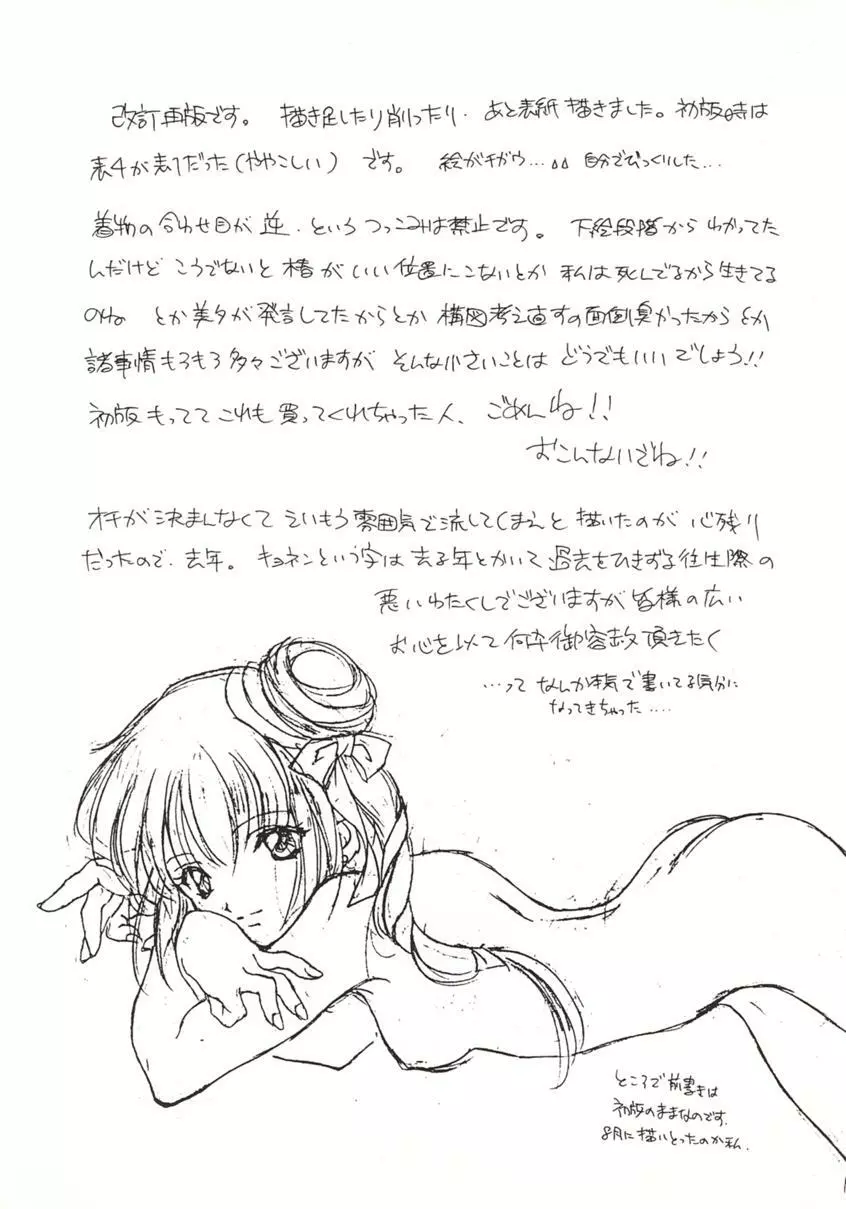 改訂再版です。 描き足したり削ったり. あと表紙描きました。初版時は
表4が表1だった(ややこしい) です。 絵がチガウ... 自分でびっくりした...
着物の合わせ目が 逆. というつっこみは禁止です。 下絵段階からわかってた
んだけど こうでないと 椿がいい位置にこないとか 私は死んでるから生きてる
のね とか美夕が発言してたからとか 構図考え直すの面倒臭かったからとか
諸事情もろもろ多々ございますが そんな小さいことは どうでもいいでしょう!!
初版もってて これも 買ってくれちゃった人、 ごめんね!!
おこんないでね!!
オチが決まんなくて えいもう 雰囲気で流してしまえと 描いたのが 心残り
だったので. 去年。 キョネンという字は去る年とかいて 過去をひきずる往生際の
悪いわたくしでございますが皆様の広い
お心を以て何卒御容赦頂きたく
...って なんか本気で書いてる気分に
なってきちゃった....
ところで前書きは
初版のままなのです.
8月に描いとったのか私.
1